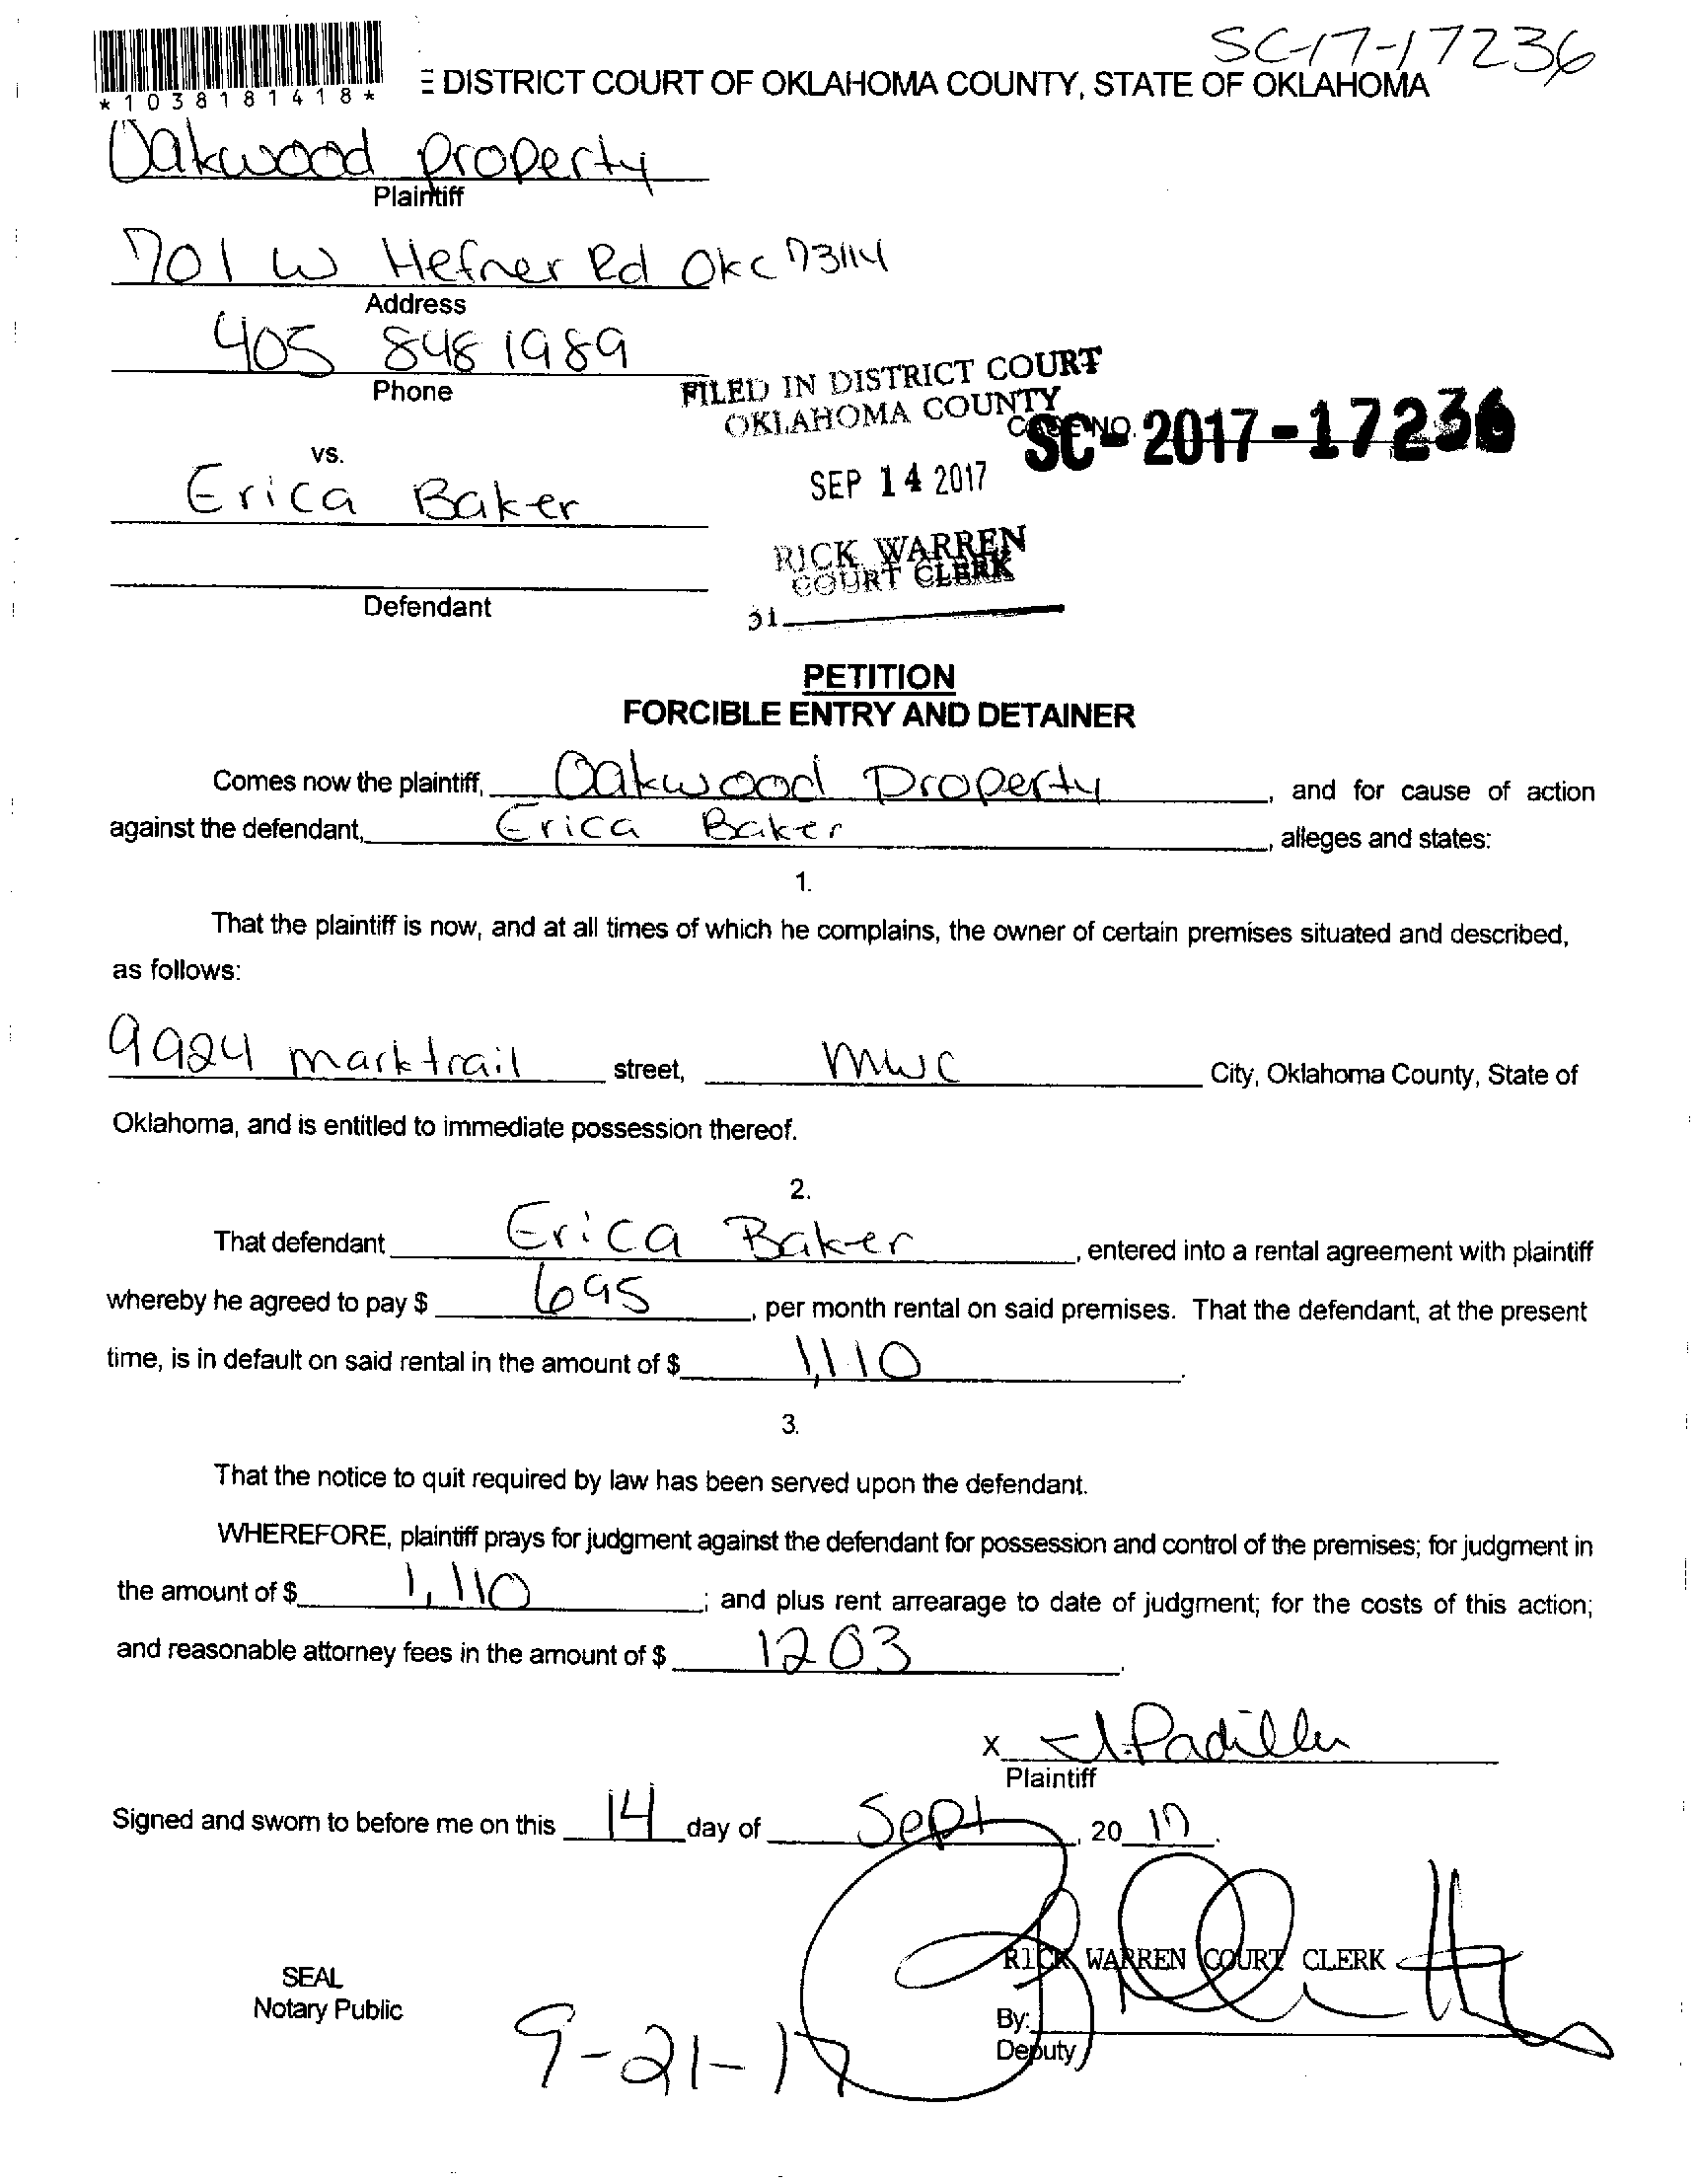 SC-17-17236
*1038181418*
E DISTRICT COURT OF OKLAHOMA COUNTY, STATE OF OKLAHOMA
Oakwood Property
Plaintiff
701 W Hefner Rd Okc 73114
Address
405 848 1989
Phone
FILED IN DISTRICT COURT
OKLAHOMA COUNTY
CASE NO. SC-2017-17236
vs.
SEP 14 2017
Erica Baker
RICK WARREN
COURT CLERK
Defendant
31
PETITION
FORCIBLE ENTRY AND DETAINER
Comes now the plaintiff, Oakwood Property, and for cause of action
against the defendant, Erica Baker, alleges and states:
1.
That the plaintiff is now, and at all times of which he complains, the owner of certain premises situated and described,
as follows:
9924 marktrail street, MWC City, Oklahoma County, State of
Oklahoma, and is entitled to immediate possession thereof.
2.
That defendant Erica Baker, entered into a rental agreement with plaintiff
whereby he agreed to pay $ 695, per month rental on said premises. That the defendant, at the present
time, is in default on said rental in the amount of $ 1,110.
3.
That the notice to quit required by law has been served upon the defendant.
WHEREFORE, plaintiff prays for judgment against the defendant for possession and control of the premises; for judgment in
the amount of $ 1,110; and plus rent arrearage to date of judgment; for the costs of this action;
and reasonable attorney fees in the amount of $ 1203.
x J. Padilla
Plaintiff
Signed and sworn to before me on this 14 day of Sept, 20 17.
RICK WARREN COURT CLERK
SEAL
Notary Public
By:
Deputy
9-21-17